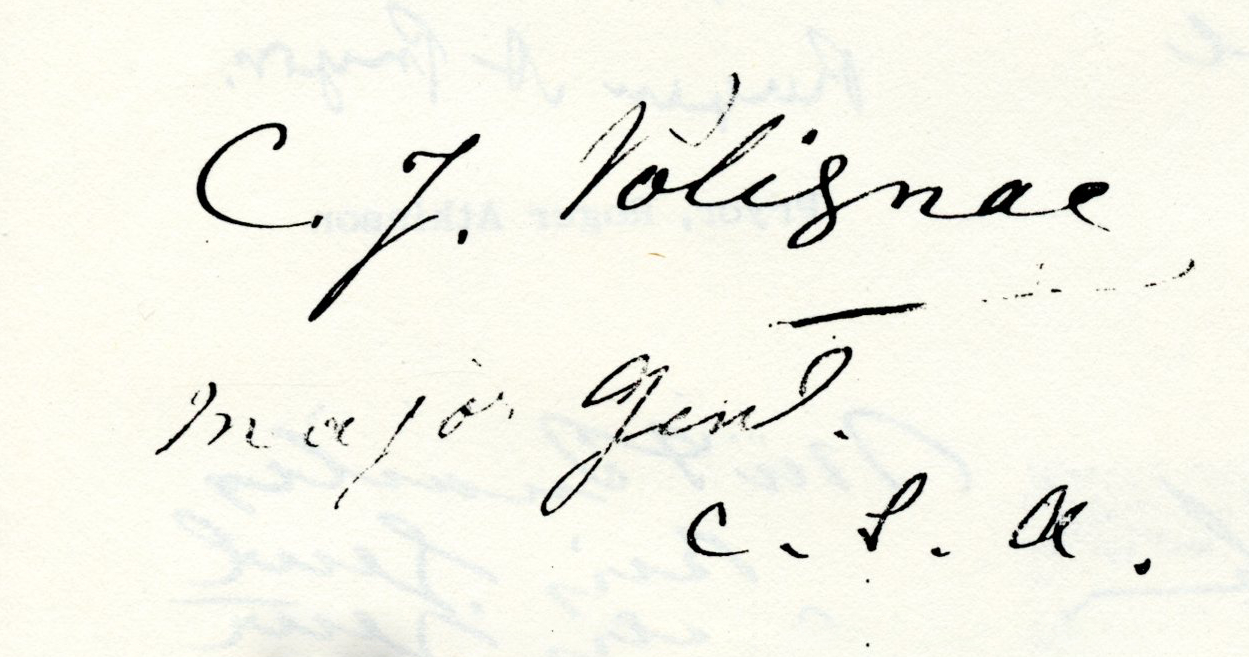 C. J. Polignac
Major Genl.
C. S. A.